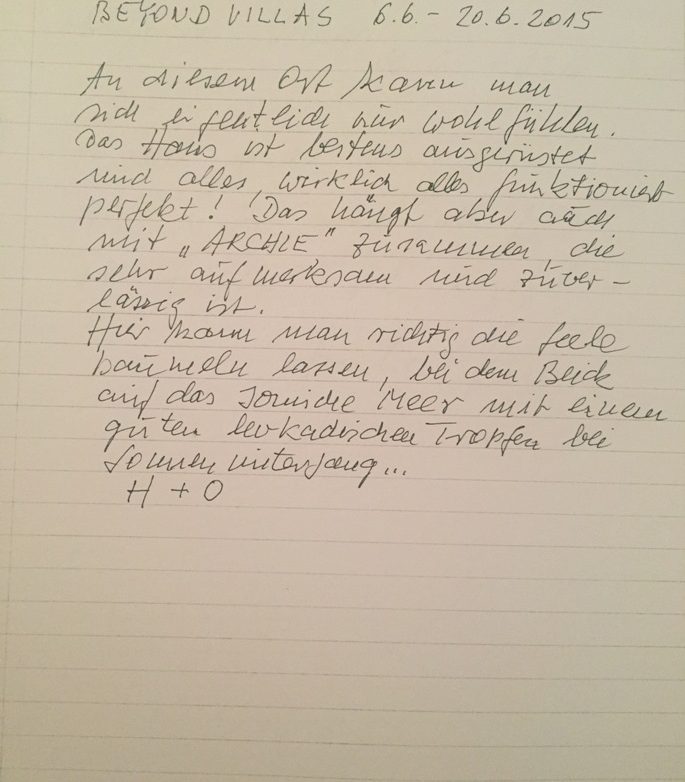 BEYOND VILLAS 6.6. - 20.6.2015
An diesem Ort kann man
sich eigentlich nur wohlfühlen.
Das Haus ist bestens ausgerüstet
und alles, wirklich alles funktioniert
perfekt! Das hängt aber auch
mit „ARCHIE" zusammen, die
sehr aufmerksam und zuver-
lässig ist.
Hier kann man richtig die Seele
baumeln lassen, bei dem Blick
auf das Ionische Meer mit einem
guten levkadischen Tropfen bei
Sonnenuntergang...
H + O